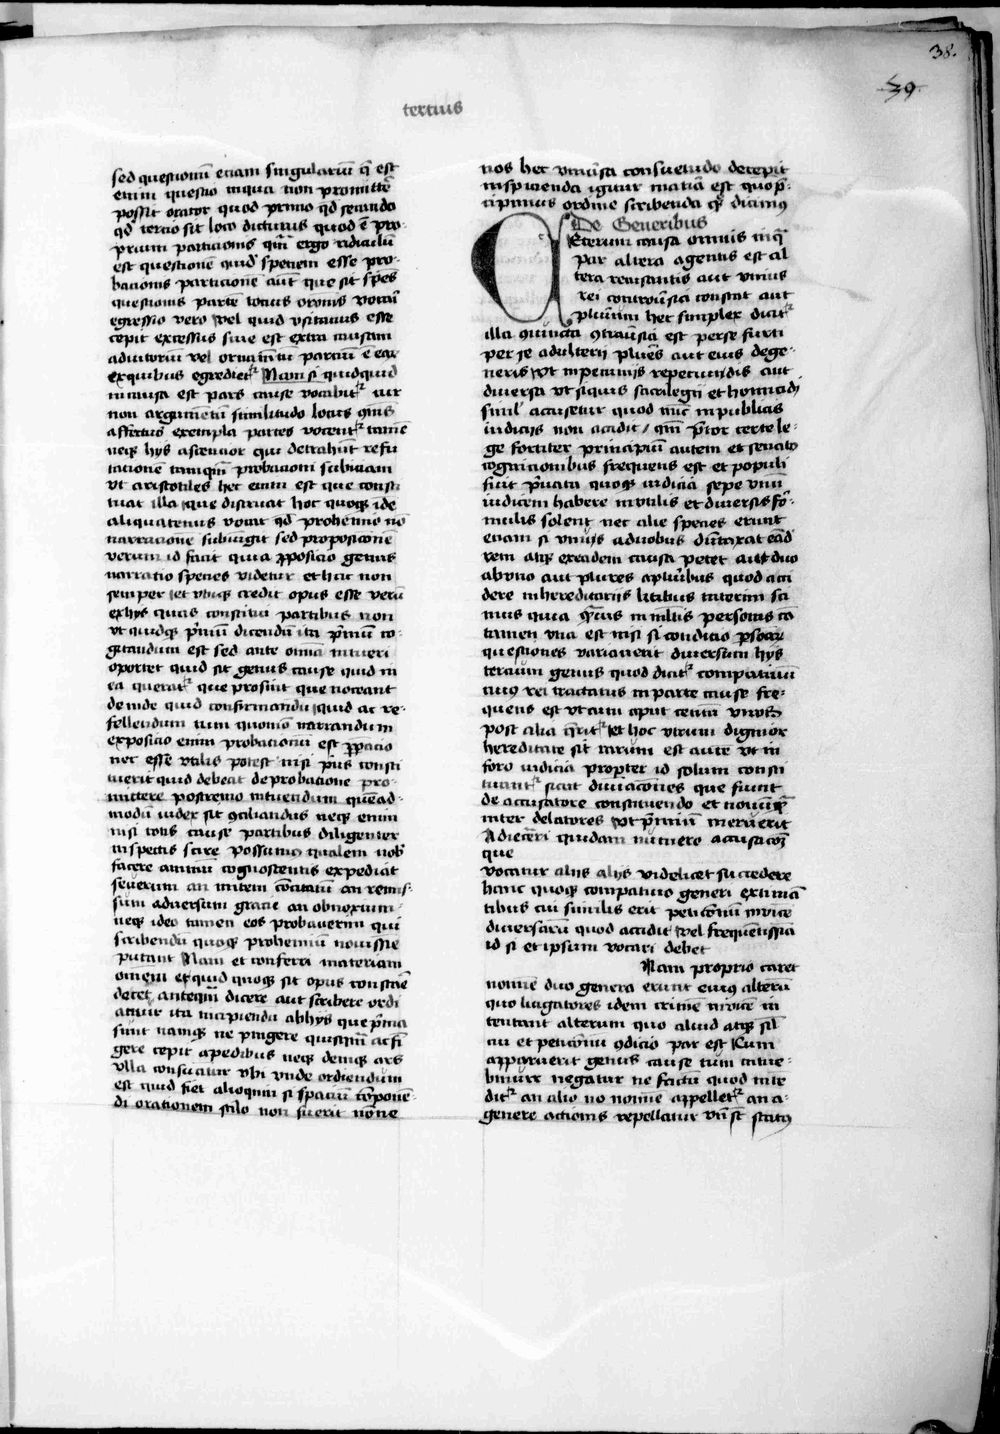 38.
39
tertius
sed questionū etiam singulariū q̄ est
enim questio inqua non promittē
possit orator quod primo qđ secundo
qđ tertio sit loco dicturus quod ē pro-
prium particionis qm̄ ergo ridiculū
est questionē quid speciem esse pro-
bacionis particionē aūt que sit spēs
questionis partē tocius oronis vocai
egressio vero vel quid vsitacius esse
cepit excessus siue est extra causam
adiutoriū vel ornamētū parciū ē ear
exquibus egrediet᷑ Nam si quidquid
incausa est pars cause vocabit᷑ cur
non argumentū similitudo locus cōis
affectus exempla partes vocent᷑ tamē
neqꝫ hys assentior qui detrahūt refu
tacionē tamqm̄ probacioni subiectam
vt aristotiles hec enim est que consti
tuat illa que distruat hoc quoqꝫ idē
aliquatenus vocat qđ prohemio nō
narracionē subiungit sed proposicionē
verum id facit quia ꝓposicio genus
narratio species videtur et hac non
semper et vbiqꝫ credit opus esse verū
exhys quas constitui partibus non
vt quidqꝫ p̄mū dicendū ita p̄mū co-
gitandum est sed ante oīnia intueri
oportet quid sit genus cause quid in
ea querat᷑ que prosint que noceant
deinde quid confirmandū quid ac re-
fellendum tum quomō narrandum
exposicio enim probacionū est p̄pacio
nec esse vtilis potest nisi p̄us consti
uerit quid debeat de probatione pro-
mittere postremo intuendum quēad-
modū iudex sit 9ciliandus neqꝫ enim
nisi totis cause partibus diligenter
inspectis scire possumꝰ qualem nobꝭ
facere animū cognoscentis expediat
seuerum an mitem cōcitatū an remis-
sum aduersum gracie an obnoxium
neqꝫ ideo tamen eos probauerim qui
scribendū quoqꝫ prohemiū nouissīe
putant Nam et conferri materiam
omnem et quid quoqꝫ sit opus constāe
decet anteqm̄ dicere aut scribere ordi
atur ita incipiendū abhys que p̄ma
sunt namqꝫ ne pingere quisqm̄ ac fī
gere cepit apedibus neqꝫ deniqꝫ ars
vlla consūatur vbi vnde ordiendum
est quid fiet alioquin si spacium cōponē-
di orationem stilo non fuerit nōne
nos hec inuersa consuetudo decepit
inspicienda igitur matīā est quo p̄-
cipimus ordine scribenda q̄ dicimꝰ
De Generibus
CEterum causa omnis inq̄
par altera agentis est al
tera recusantis aut vnius
rei controūsia constat aut
plurium hec simplex dicit᷑
illa 9iuncta 9trauersia est perse furti
per se adulterii plures aut eius dege-
neris vt inpecuniis repetundis aut
diuersa vt siquis sacrilegii et homicidij
simil᷑ accusetur quod nūc inpublicis
iudicijs non accidit / qm̄ p̄tor certe le-
ge fortiter principum autem et senato
cognicionibus frequens est et populi
fuit p̄uata quoqꝫ iudicia sepe vnū
iudicem habere inutilis et diuersis fō-
mulis solent nec alie species erunt
etiam si vnus aduobus dūtaxat eād
rem atqꝫ exeadem causa petet aut duo
abuno aut plures aplūibus quod acci
dere inhereditariis litibus interim sci
mus quia quis in multis personis ca
tamen vna est nisi si condicio psōar
questiones variauerit diuersum hys
tercium genus quod dicit᷑ comparatiuū
cuiꝰ rei tractatus in parte cause fre-
quens est vt cum aput centū viros
post alia q̄rit᷑ et hoc vtrum dignior
hereditate sit rarum est autē vt in
foro iudicia propter id solum consti
tuant᷑ sicut diuiacōnes que fiunt
de accusatore constituendo et nonūq̄
inter delatores vt p̄mium meruerit
Adiecerī quidam numero accusacōꝫ
que
vocatur aliis alijs videlicet succedere
hanc quoqꝫ comparatiuo generi extimā
tibus cui similis erit peticōnū inuicē
diuersarū quod accidit vel frequētissīa
id si et ipsum vocari debet
Nam proprio caret
nomine duo genera erunt eiuꝰ alterū
quo litigatores idem crimē inuicē in
tentant alterum quo aliud atqꝫ aliud
cui et peticōnū 9dicio par est Cum
apparuerit genus cause tum intue-
bimur negatur ne factū quod inte
dit᷑ an alio nō nomine appellet᷑ an a-
genere actionis repellatur vn̄ st statꝰ